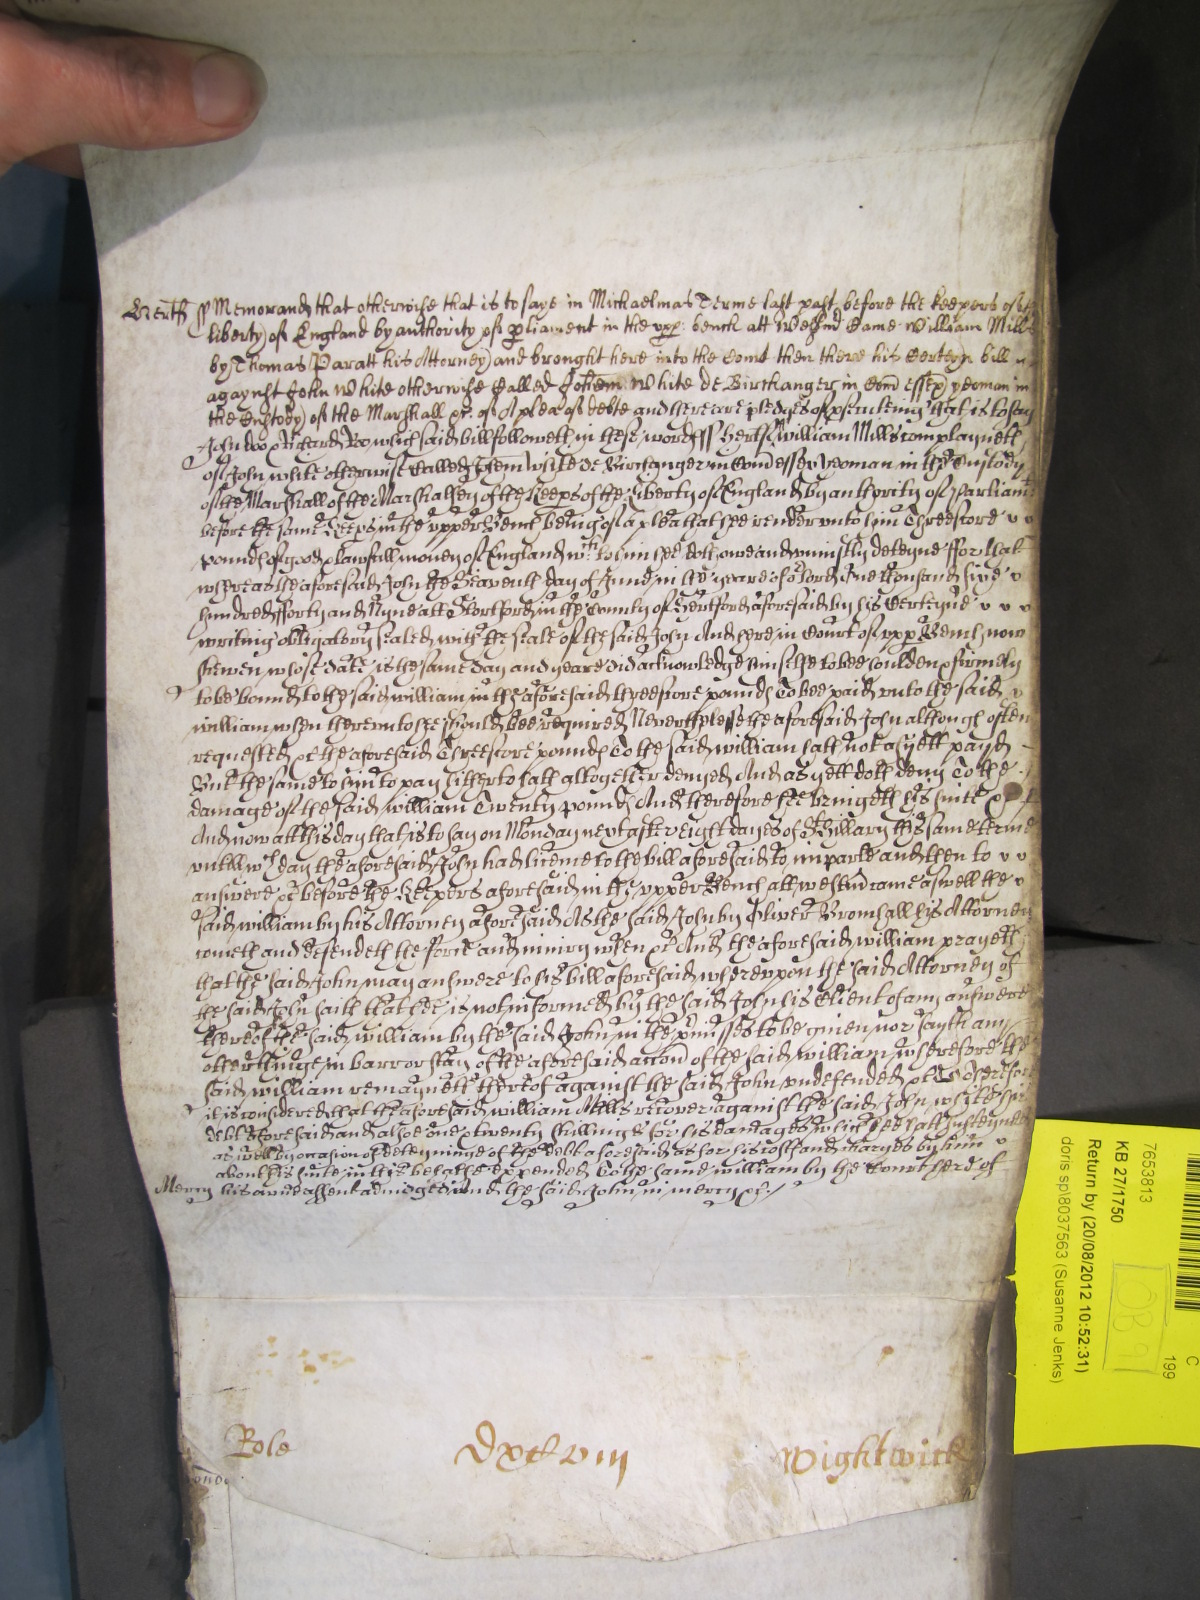 Hertf ss Memorand that otherwise that is to saye in Michaelmas Terme last past before the keepers of the
liberty of England by authority of parliament in the upp: bench att Westm Came William Mills
by Thomas Paratt his Attorney and brought here into the Court then there his Certeyn bill
agaynst John White otherwise Called Johem White de Birchanger in Com Essex yeoman in
the Custody of the Marshall &c of A plea of debte and there are pledges of prosecuting that is to say
John Doo & Richard Roo which said bill followeth in these words ss Hertf William Mills complayneth
of John White otherwise Called Johem White de Birchanger in Com Essex yeoman in the Custody
of the Marshall of the Marshalsey of the Keeps of the Liberty of England by authority of Parliamt
before the same Keeps in the upper Bench being of a plea that hee render unto him Threescore
pounds of good & lawfull money of England wch to him hee doth owe and uniustly deteyne ffor that
whereas the aforesaid John the day of June in the yeare of or Lord One thousand
hundred fforty and Nyne att Stortford in the County of Hertford aforesaid by his Certeyne
writing obligatory sealed with the seale of the said John And here in Court of upp Bench now
shewen whose date is the same day and yeare did acknowledge himselfe to bee houlden & firmely
to be bound to the said William in the aforesaid threescore pounds To bee paid unto the said
William when thereunto hee should bee required Neverthelesse the aforesaid John although often
requested &c the aforesaid Threescore pounds To the said William hath not as yett payd
But the same to him to pay hitherto hath altogether denyed And as yett doth deny To the
damage of the said William Twenty pounds And therefore hee bringeth his suite &c
And now att this day that is to say on Monday next after eight dayes of St Hillary this same terme
untill wch day the aforesaid John had licence to the bill aforesaid to imparle and then to
answere &c before the Keepers aforesaid in the upper Bench att Westm came aswell the
said William by his Attorney aforesaid As the said John by Oliver Bromhall his Attorney
cometh and defendeth the force and iniury when &c And the aforesaid William prayeth
that the said John may answere to his bill aforesaid whereupon the said Attorney of
the said John saith that hee is not informed by the said John his Client of any answere
thereof the said William by the said John in the pmisses to be given nor sayth any
other thinge in barr or stay of the aforesaid accon of the said William wherefore the
said William remayneth thereof against the said John undefended &c Therefore
it is considered that the aforesaid William Mills recover against the said John White his
debt aforesaid and alsoe one & twenty shillings for his damages which hee hath susteyned
as well by occasion of deteyninge of the debt aforesaid as for his costs and charges by him
about his suite in this behalfe expended To the same William by the Court here of
Mercy his owne assent adiudged And the said John in mercy &c
Role Dxcviii Wightwick
7653813
KB 27/1750
Return by (20/08/2012 10:52:31)
doris sp\8037563 (Susanne Jenks)
C
199